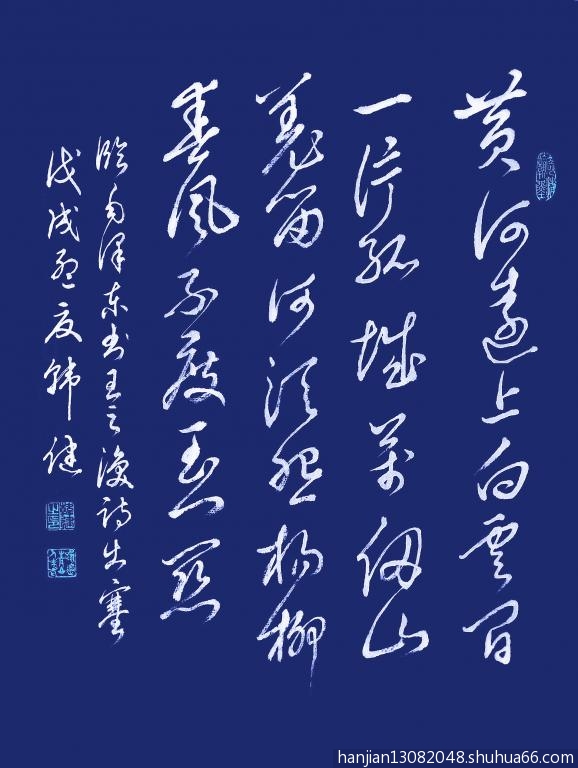 黄河遠上白雲间
一片孤城萬仞山
羌笛何须怨杨柳
春风不度玉门関
临毛泽东书王之涣诗出塞
戊戌孟夏韩健
hanjian13082048.shuhua66.com